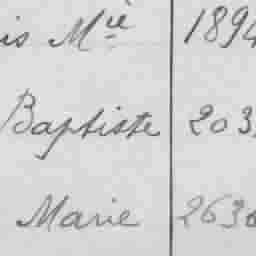 is Mie 1894
Baptiste 203
Marie 2630